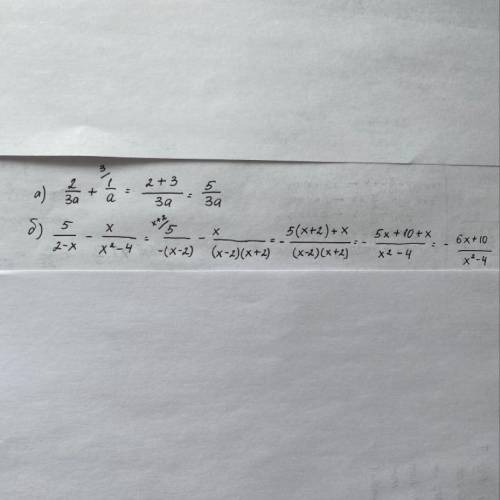 а) 2/3a + ³/1/a = (2+3)/3a = 5/3a
б) 5/(2-x) - x/(x²-4) = ˣ⁺²/5/(-(x-2)) - x/((x-2)(x+2)) = - (5(x+2)+x)/((x-2)(x+2)) = - (5x+10+x)/(x²-4) = - (6x+10)/(x²-4)